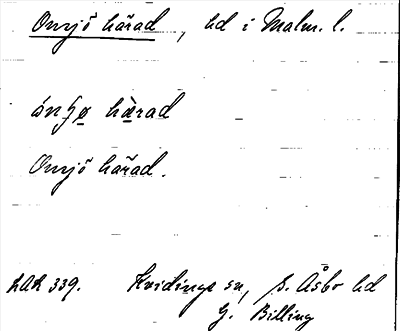 Onsjö härad, hd i Malm. l.
ónʃø hæ̀rad
Onsjö härad.
LAL 339. Kvidinge sn, S. Åsbo hd
G. Billing